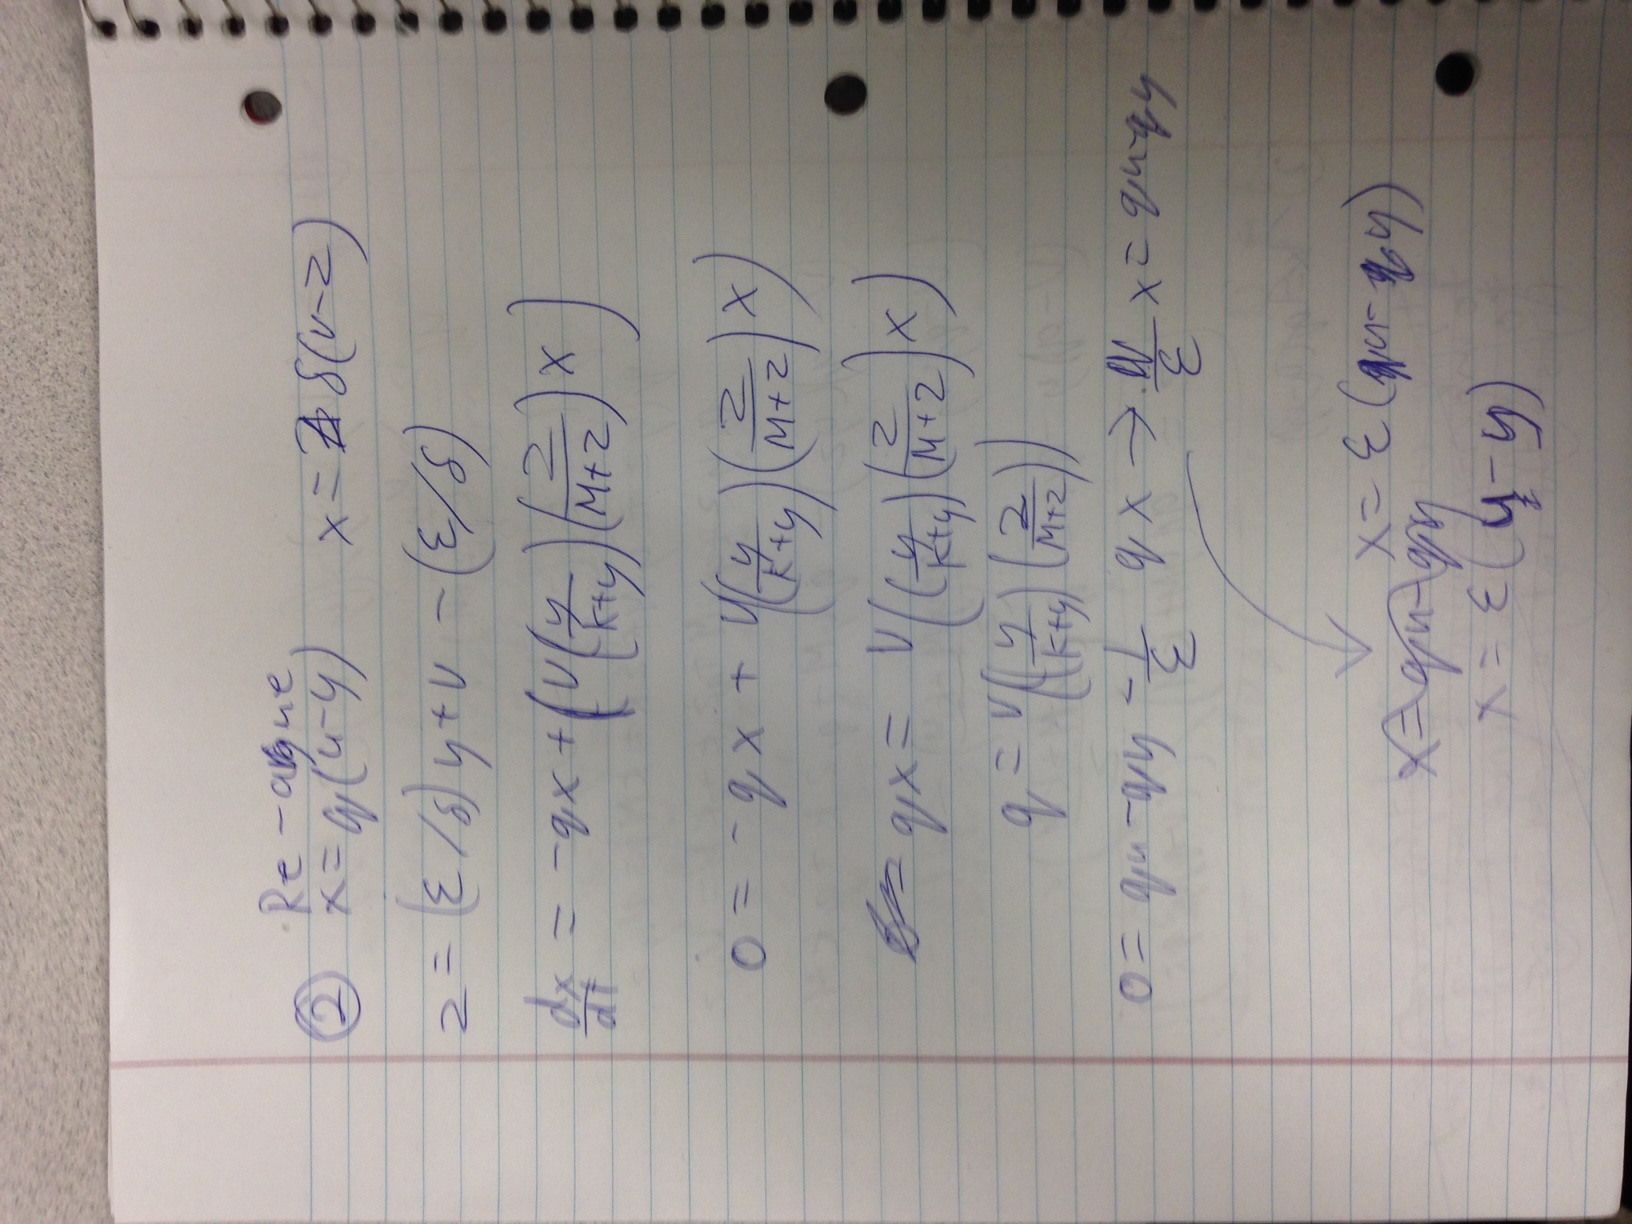 Re-aragne
② x = q(u-y) x = δ(v-z)
z = (ε/δ)y + v - (ε/δ)
dx/dt = -qx + (V(y/(k+y))(z/(M+z))x)
0 = -qx + V((y/(k+y))(z/(M+z))x)
qx = V((y/(k+y))(z/(M+z))x)
q = V((y/(k+y))(z/(M+z)))
0 = qu - qy - 1/ε qx → q/ε x = qu-qy
x = ε(qu-qy)
x = qu-qy
x = ε(u-y)